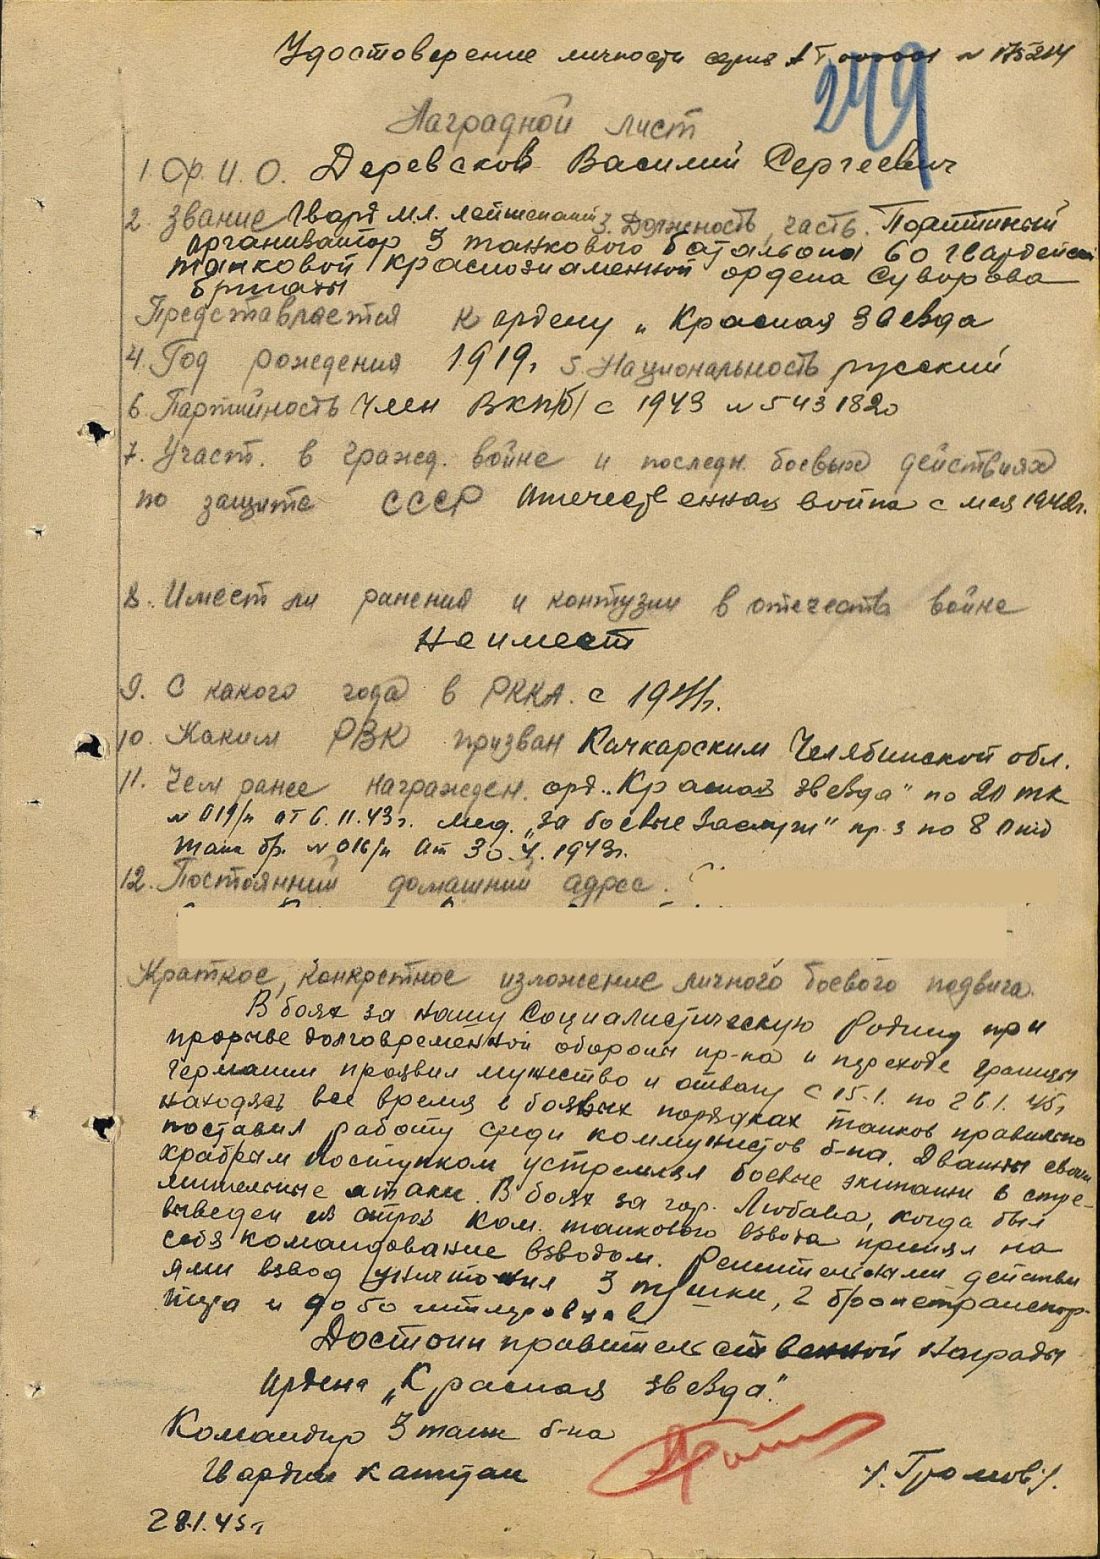 Удостоверение личности серия АТ № 175214
249
Наградной лист
1. Ф. И. О. Деревсков Василий Сергеевич
2. Звание Гвард мл. лейтенант 3. Должность, часть. Партийный
организатор 3 танкового батальона 60 гвардейской
танковой краснознаменной ордена Суворова
бригады
Представляется к ордену „Красная звезда
4. Год рождения 1919г. 5. Национальность русский
6. Партийность Член ВКП/б/ с 1943 № 5431820
7. Участ. в гражд. войне и последн. боевых действиях
по защите СССР Отечественная война с мая 1942г.
8. Имеет ли ранения и контузии в отечеств войне
Не имеет
9. С какого года в РККА. с 1941г.
10. Каким РВК призван Качкарским Челябинской обл.
11. Чем ранее награжден. орд. „Красная звезда" по 20 тк
№ 019/н от 6.11.43г. мед. „За боевые заслуги" пр. 3 по 8 отд
танк бр. № 016/н от 30.4.1943г.
12. Постоянний домашний адрес.
Краткое, конкретное изложение личного боевого подвига.
В боях за нашу Социалистическую Родину при
прорыве долговременной обороны пр-ка и переходе границы
Германии проявил мужество и отвагу с 15.1. по 26.1.45г
находясь все время в боевых порядках танков правильно
поставил работу среди коммунистов б-на. Дважды своим
храбрым поступком устремлял боевые экипажи в стре-
мительные атаки. В боях за гор. Любава, когда был
выведен из строя ком. танкового взвода принял на
себя командование взводом. Решительными действи
ями взвод уничтожил 3 пушки, 2 бронетранспор-
тера и до 60 гитлеровцев
Достоин правительственной награды
Ордена „Красная звезда".
Командир 3 танк б-на
Гвардии капитан /Громов/.
28.1.45г